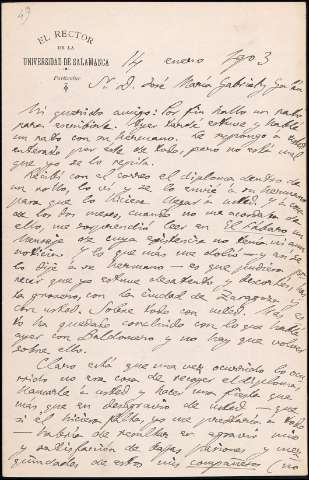 EL RECTOR
DE LA
UNIVERSIDAD DE SALAMANCA
Particular
14 enero 1903
Sr. D. José María Gabriel y Galán
Mi querido amigo: Por fin hallo un rato
para escribirle. Ayer tarde estuve y hablé
un rato con su hermano. Le supongo a usted
enterado por éste de todo, pero no está mal
que yo se lo repita.
Recibí con el correo el diploma dentro de
un rollo, lo vi y se lo envié a su hermano
para que lo hiciera llegar a usted, y a cosa
de los dos meses, cuando no me acordaba de
ello, me sorprendió leer en El Lábaro un
mensaje de cuya existencia no tenía ni aun
noticia. Y lo que más me dolió — y así se
lo dije a su hermano — es que pudiera pa-
recer que yo estuve desatento y descortés, has-
ta grosero, con la ciudad de Zaragoza y
con usted. Sobre todo con usted.
to ha quedado concluido con lo que hablé
ayer con Baldomero y no hay que volver
sobre ello.
Claro está que una vez ocurrido lo ocu-
rrido no era cosa de recoger el diploma,
llamarle a usted y hacer una fiesta que
más que en desagravio de usted — que
si él hiciera falta, yo me prestaría a todo
— habría de resultar en agravio mío
y satisfacción de
quindades de estos mis compañeros (no